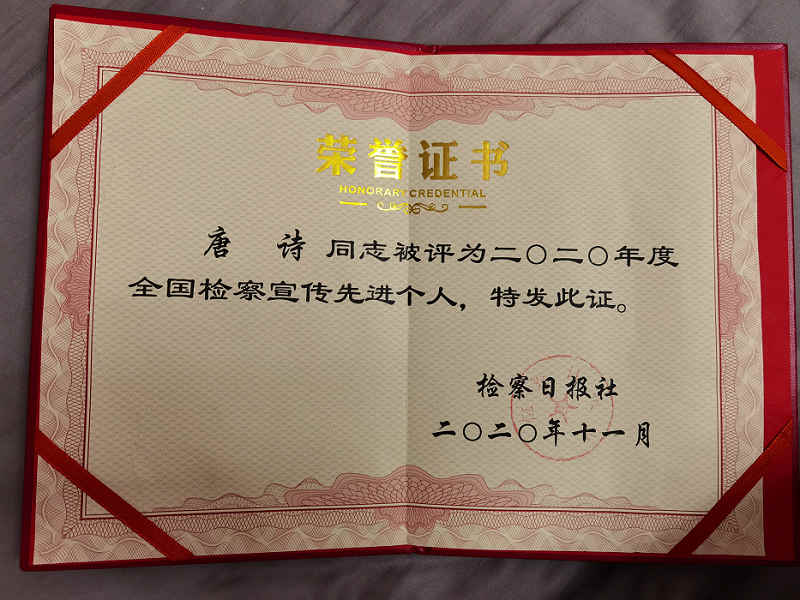 荣誉证书
HONORARY CREDENTIAL
唐 诗 同志被评为二〇二〇年度
全国检察宣传先进个人，特发此证。
检察日报社
二〇二〇年十一月